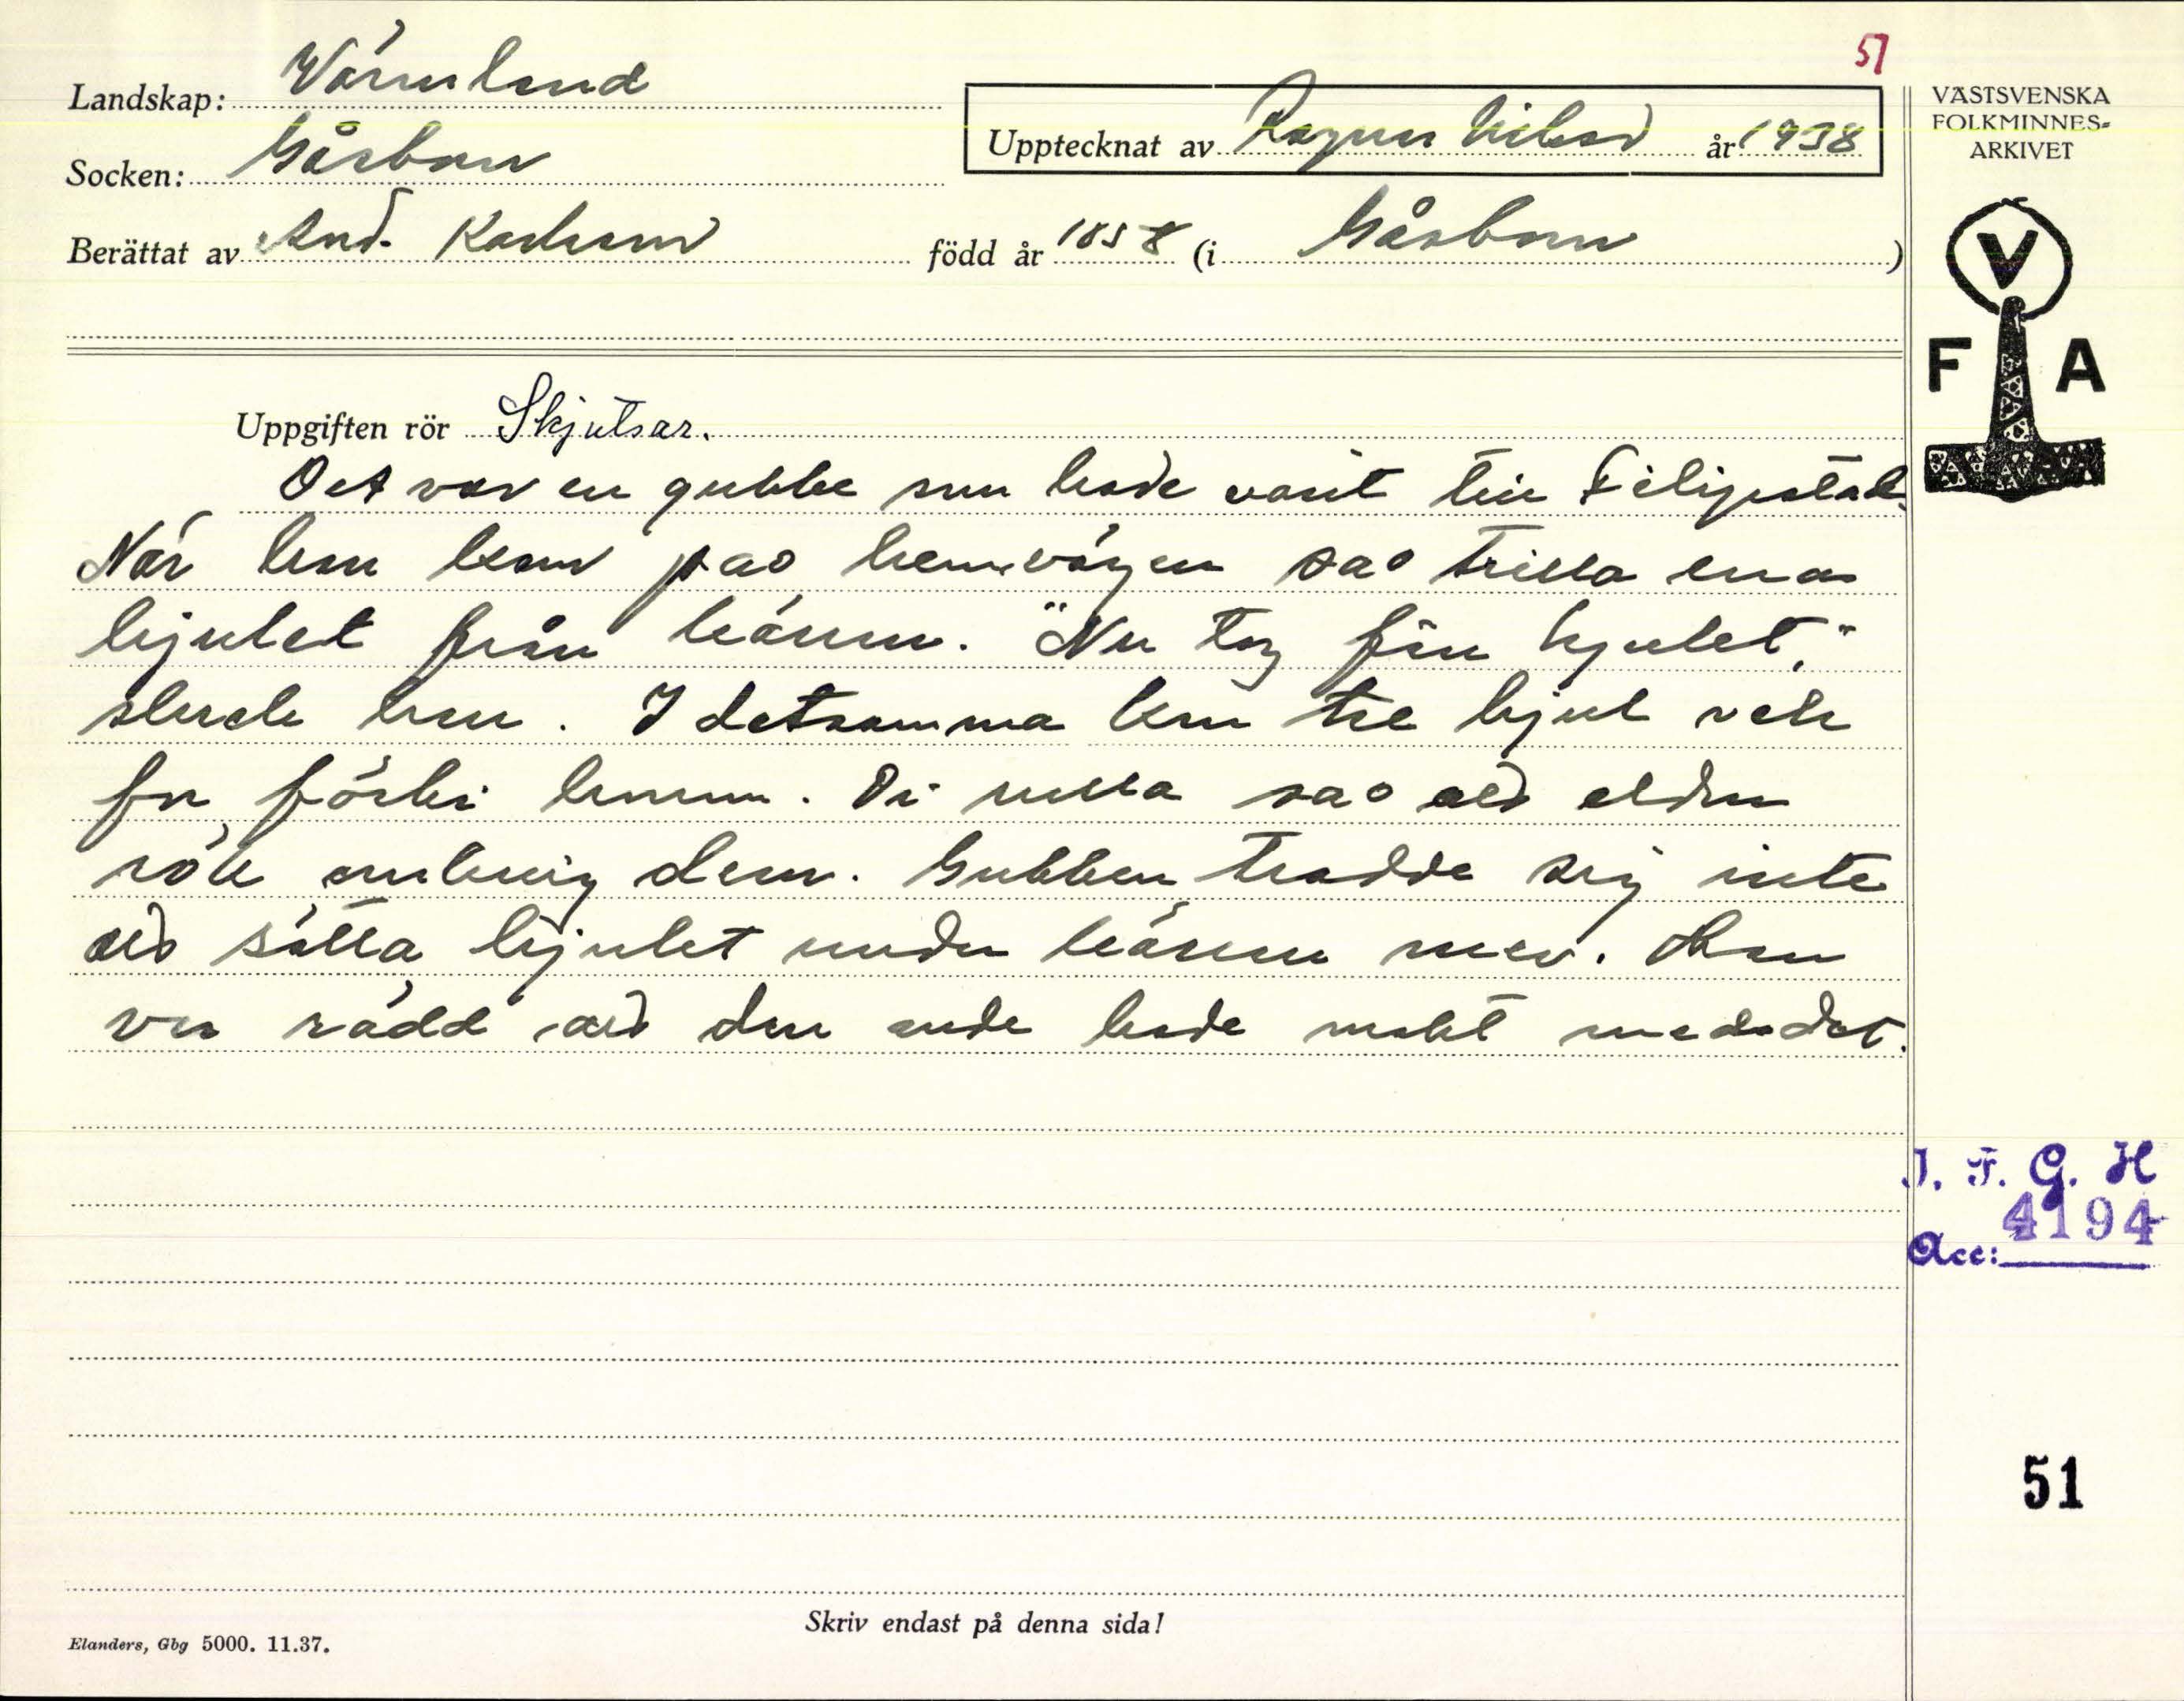 51
Landskap: Värmland
Socken: Gåsborn
Upptecknat av Ragnar Nilsson år 1938
Berättat av And. Karlsson född år 1858 (i Gåsborn )
VÄSTSVENSKA
FOLKMINNES-
ARKIVET
V
F A
Uppgiften rör Skjutsar.
Det var en gubbe som hade varit till Filipstad.
När han kom pao hemvägen sao trilla ena
hjulet från kärra. "Nu tog fan hjulet,"
skrek han. I detsamma kom tre hjul och
for förbi honom. Di rulla sao att elden
rök omkring dem. Gubben trodde sig inte
att sätta hjulet under kärra mer. Han
var rädd att den onde hade makt med det.
I. F. G. H
4194
Acc:
51
Skriv endast på denna sida!
Elanders, Gbg 5000. 11.37.